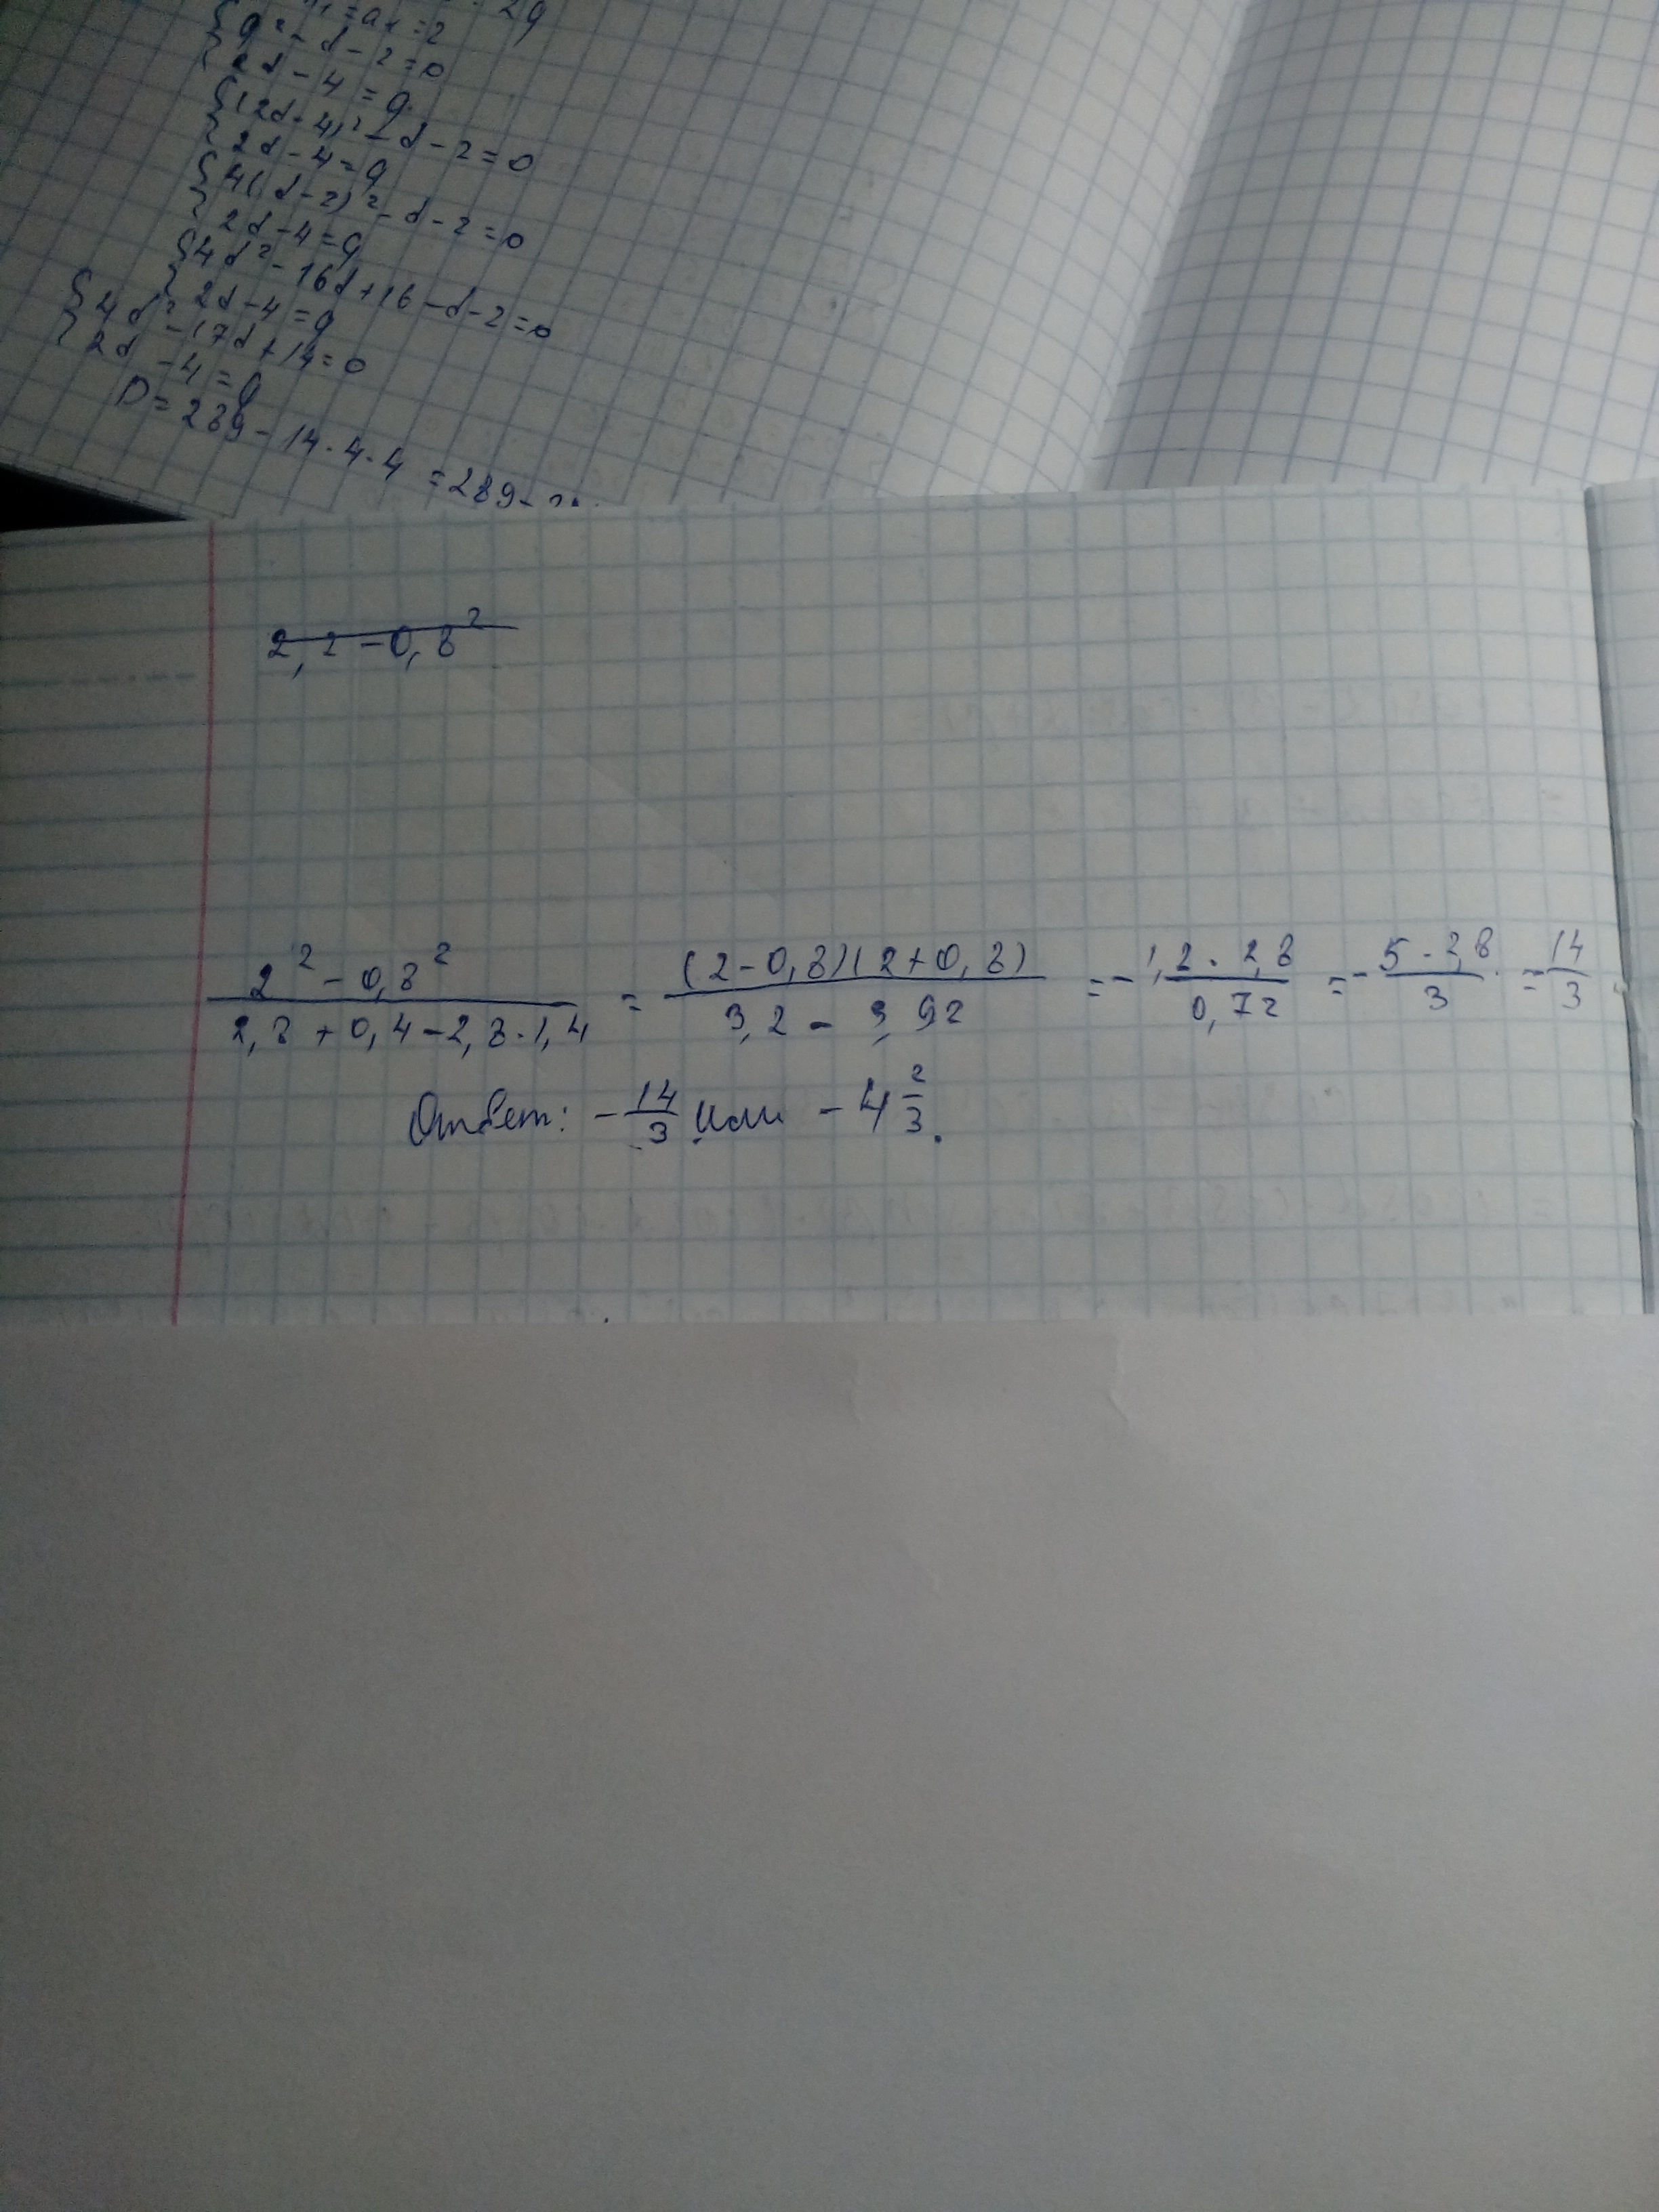 = a₁ = 2 2q
{ q² - d - 2 = 0
2d - 4 = q
{ (2d - 4)² - d - 2 = 0
2d - 4 = q
{ 4(d - 2)² - d - 2 = 0
2d - 4 = q
{ 4d² - 16d + 16 - d - 2 = 0
2d - 4 = q
{ 4d² - 17d + 14 = 0
2d - 4 = q
D = 289 - 14 · 4 · 4 = 289 -
2,2 - 0,8²
(2² - 0,8²)/(2,8 + 0,4 - 2,8 · 1,4) = ((2 - 0,8)(2 + 0,8))/(3,2 - 3,92) = - (1,2 · 2,8)/(0,72) = - (5 · 2,8)/3 = - 14/3
Ответ: - 14/3 или - 4 2/3.